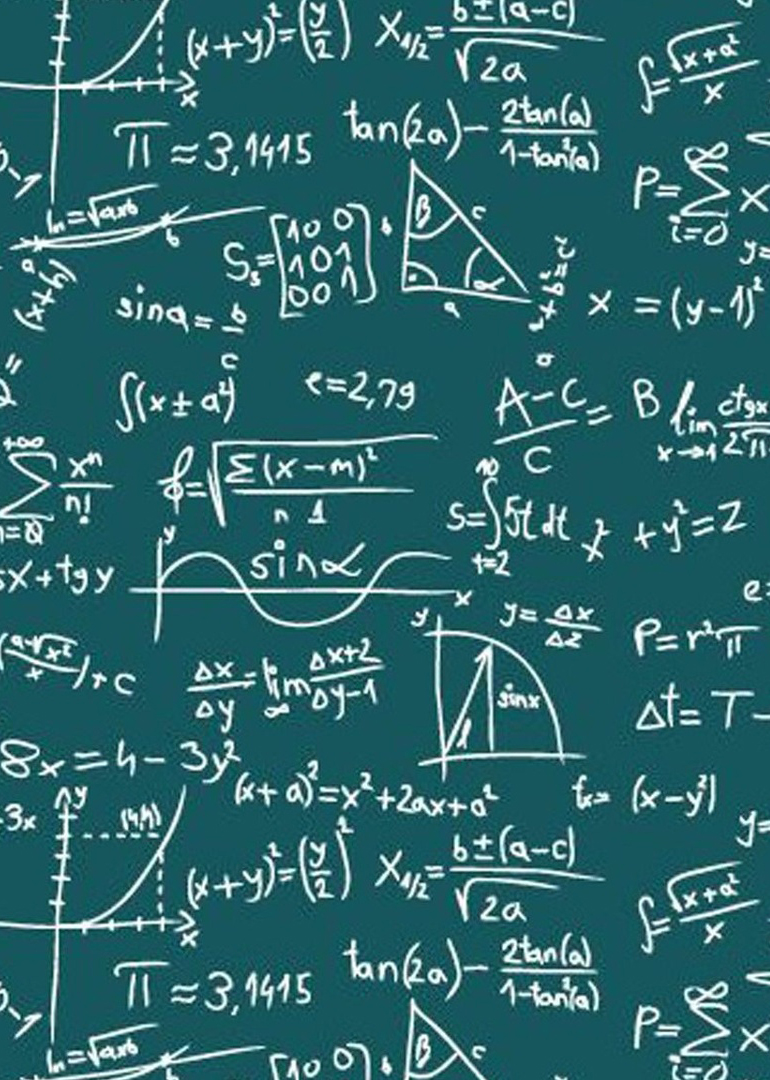 (x+y)²=(y/2) X₁/₂= b±(a-c)/√2a
∫=√x+a²/x
x
π≈3,1415
tan(2a)- 2tan(a)/1-tan²(a)
P=∑ ∞ i=0 x
ln=√axb
a b
S₅=[10 0 101 00 1]
β c b a α
(x+y)
sina= b/c
x =(y-1)²
y=
∫(x±a²)
e=2,79
A-C/C = B lim x→1 ctgx/2π
+∞ ∑ n=0 xⁿ/n!
=√∑(x-m)²/n 1
S=∫ 10 t=2 5t dt
x +y²=2
sx+tgy
y sinα x
e=
y y=Δx/Δ2
P=r²π
(a-√x²/x)+c
Δx/Δy=lim ∞ Δx+2/Δy-1
sinx
1
Δt= T-
8x=4-3y²
(x+a)²=x²+2ax+a²
tₓ= (x-y²)
-3x
y (4,4)
y=
(x+y)²=(y/2)² X₁/₂= b±(a-c)/√2a
∫=√x+a²/x
x
π≈3,1415
tan(2a)- 2tan(a)/1-tan²(a)
P=∑ ∞ i=0 x
ln=√axb
b
[10 0] b β c